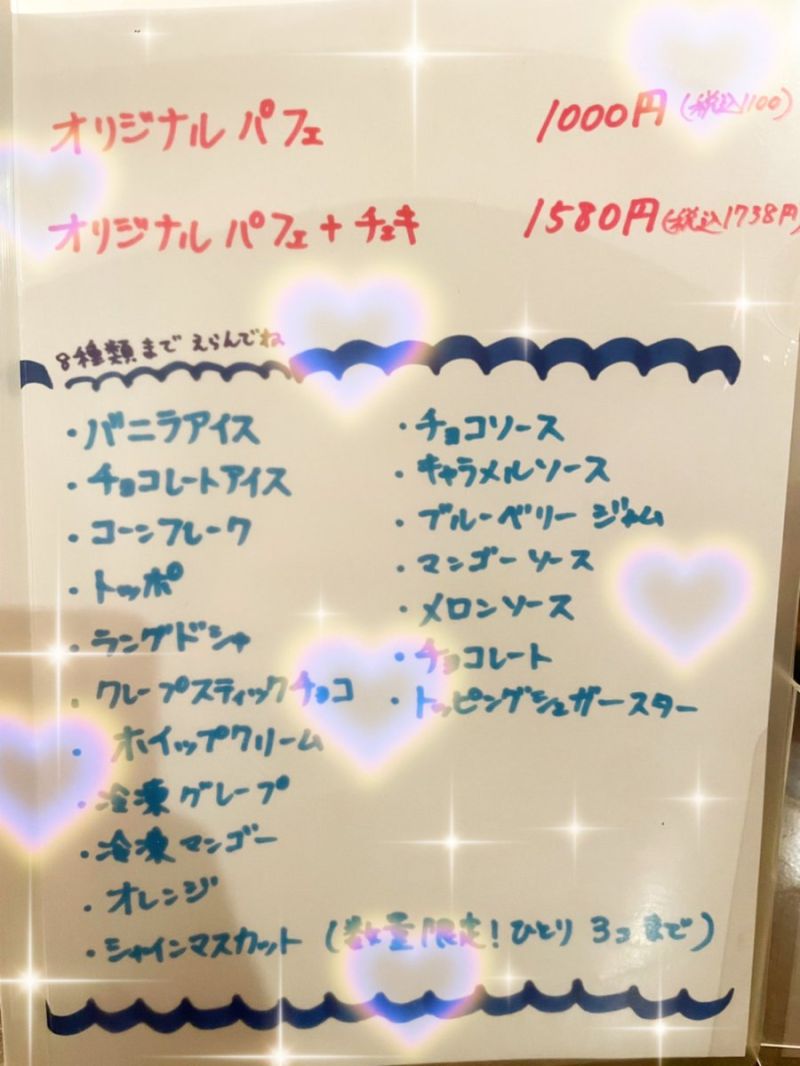 オリジナルパフェ 1000円(税込1100)
オリジナルパフェ+チェキ 1580円(税込1738円)
8種類まで えらんでね
・バニラアイス
・チョコレートアイス
・コーンフレーク
・トッポ
・ラングドシャ
・クレープスティックチョコ
・ホイップクリーム
・冷凍グレープ
・冷凍マンゴー
・オレンジ
・シャインマスカット (数量限定!ひとり 3コまで)
・チョコソース
・キャラメルソース
・ブルーベリージャム
・マンゴーソース
・メロンソース
・チョコレート
・トッピングシュガースター